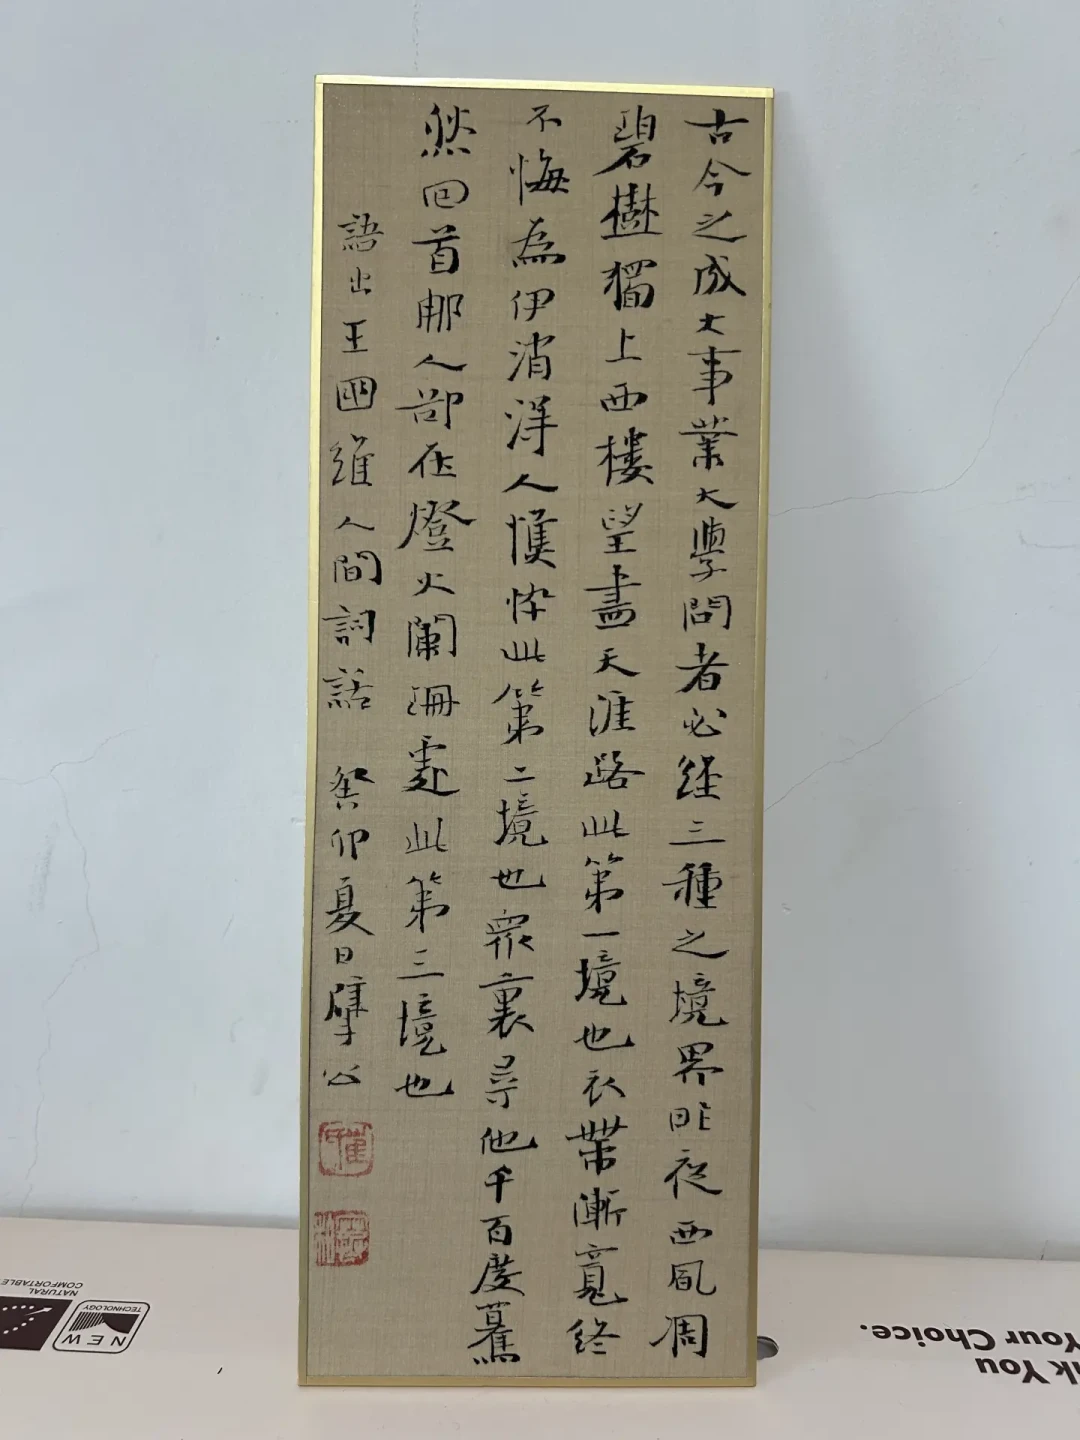 古今之成大事業大學問者必經三種之境界昨夜西風凋
碧樹獨上西樓望盡天涯路此第一境也衣帶漸寬終
不悔為伊消得人憔悴此第二境也眾裏尋他千百度驀
然回首那人卻在燈火闌珊處此第三境也
語出王國維人間詞話 癸卯夏日擘公
NATURAL
COMFORTABLE
NEW
TECHNOLOGY
k You
Your Choice.